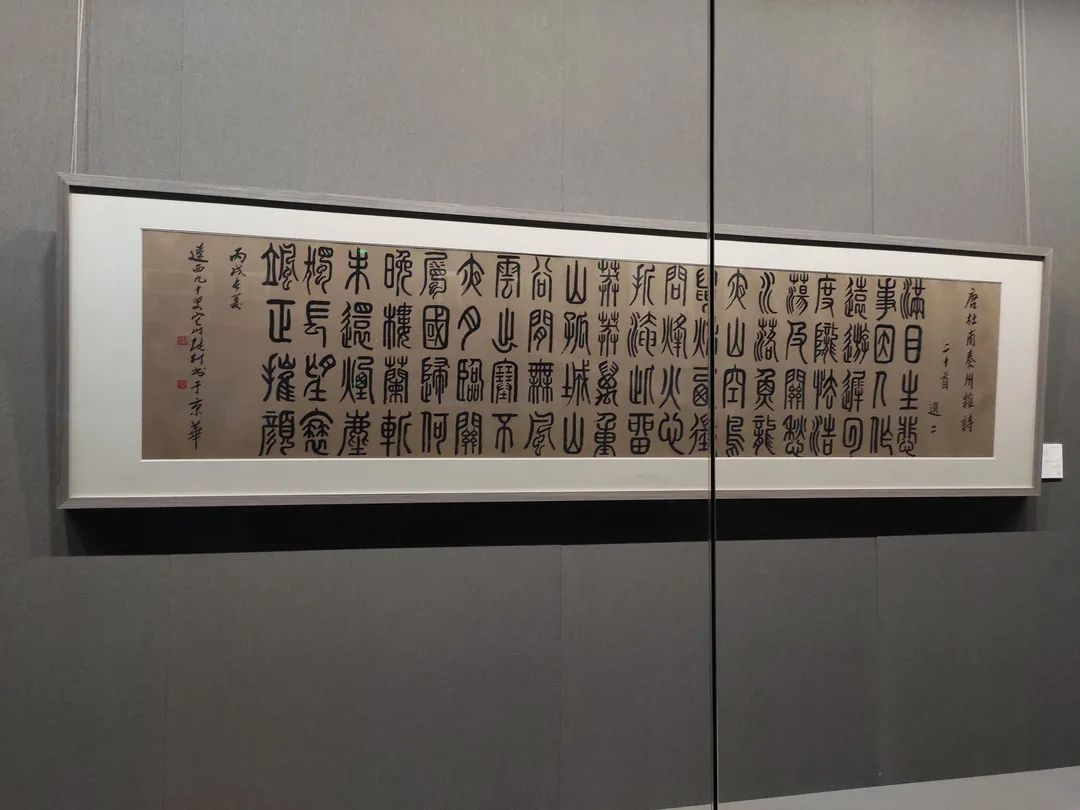 唐杜甫秦州雜詩
二十首 選二
滿目生悲
事因人作
遠遊遲回
度隴怯浩
蕩及關愁
水落魚龍
夜山空鳥
鼠秋西征
問烽火心
折淹此留
莽莽萬重
山孤城山
谷間無風
雲出塞不
夜月臨關
屬國歸何
晚樓蘭斬
未還煙塵
獨長望衰
颯正摧顏
丙戌長夏
遼西九十叟它山張仃書于京華